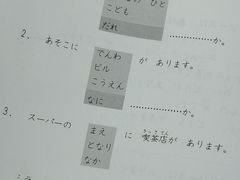 の ひと
こども
だれ
…………か。
2. あそこに
でんわ
ビル
こうえん
なに
が あります。
…………か。
3. スーパーの
まえ
となり
なか
に 喫茶店が あります。
きっさてん